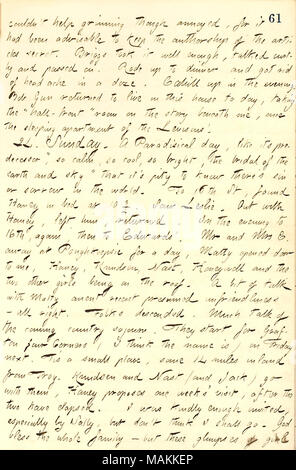 61
couldn't help grinning though annoyed, for it
had been advisable to keep the authorship of the arti-
cles secret. Briggs took it well enough, talked
and passed on. Rode up to dinner and got rid
of headache in a doze. Cahill up in the evening.
Bob Gun returned to live in this house to day, taking
the "hall-front" room on the story beneath one, once
the sleeping apartment of the
24. Sunday. A Paradisical day, like its pre-
decessor, "so calm, so cool, so bright, the bridal of the
earth and sky" that it's pity to know there's sin
or sorrow in the world. To 16th St, found
Haney in bed at 10 ½. Saw Leslie. Out with
Haney, left him returned. In the evening to
16th again; then to Edwards. Mr and Mrs E.
away at Poughkeepsie for a day, Matty opened door
to me, Haney, Knudsen, Nast, Honeywell and the
two other girls being on the roof. A bit of talk
with Matty anent recent presumed unfriendliness
— all right. Folks descended. Much talk of
the coming country sojourn. They start for Graf-
ton four corners, (I think the name is,) on Friday
next. Tis a small place, some 14 miles inland
from Troy. Knudsen and Nast (and Jack) go
with them, Haney proposes one week's visit, after the
two have elapsed. I was kindly enough invited,
especially by Sally, but don't think I shall go. God
bless the whole family — but these glimpses of
alamy
Image ID: MAKKEP
www.alamy.com